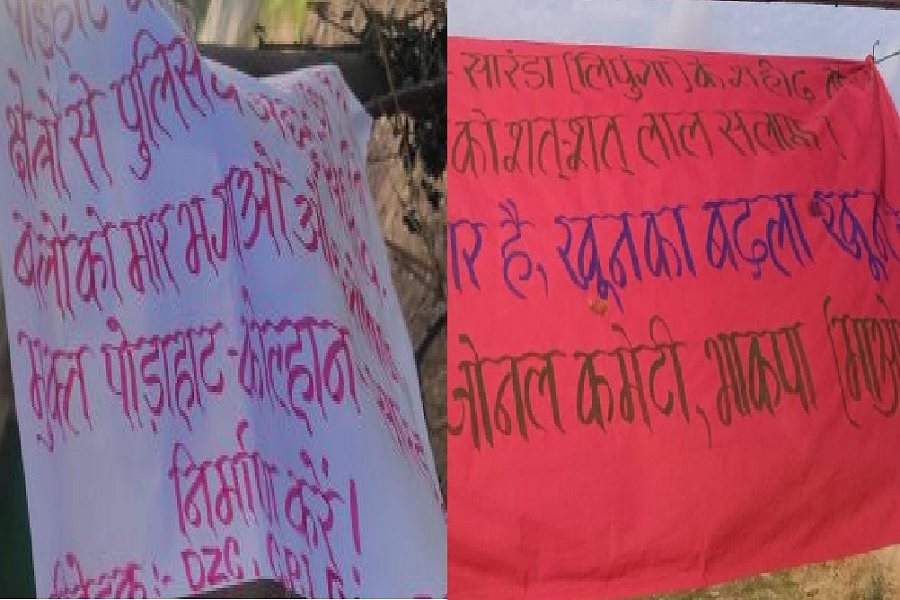 क्षेत्रों से पुलिस
बलों को मार भगाओ और
मुक्त पोड़ाहाट-कोल्हान
निर्माण करें।
:- DZC, CPI
सारंडा (लिपुंगा) के शहीद
को शत्-शत् लाल सलाम।
है, खून का बदला खून
जोनल कमेटी, भाकपा (माओ